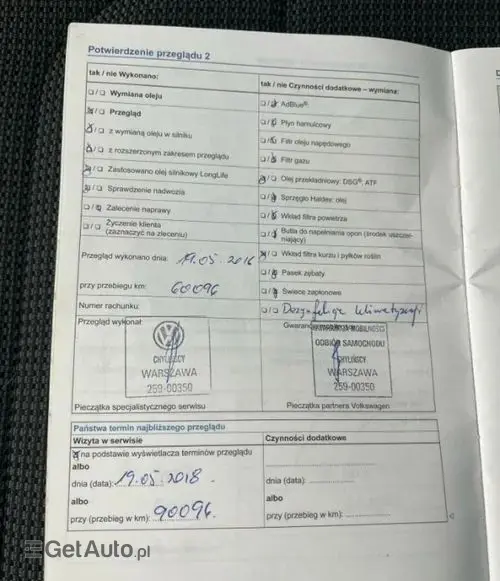 Potwierdzenie przeglądu 2
tak / nie Wykonano:
☐/☐ Wymiana oleju
☒/☐ Przegląd
☒/☐ z wymianą oleju w silniku
☒/☐ z rozszerzonym zakresem przeglądu
☒/☐ Zastosowano olej silnikowy LongLife
☒/☐ Sprawdzenie nadwozia
☐/☒ Zalecenie naprawy
☐/☐ Życzenie klienta
(zaznaczyć na zleceniu)
Przegląd wykonano dnia: 19.05.2016
przy przebiegu km: 60096
Numer rachunku:
Przegląd wykonał:
CHYLIŃSCY
WARSZAWA
259-00350
Pieczątka specjalistycznego serwisu
tak / nie Czynności dodatkowe – wymiana:
☐/☒ AdBlue®:
☐/☒ Płyn hamulcowy
☐/☒ Filtr oleju napędowego
☐/☒ Filtr gazu
☒/☐ Olej przekładniowy: DSG®, ATF
☐/☒ Sprzęgło Haldex: olej
☐/☒ Wkład filtra powietrza
☐/☒ Butla do napełniania opon (środek uszczel-
niający)
☒/☐ Wkład filtra kurzu i pyłków roślin
☐/☒ Pasek zębaty
☐/☒ Świece zapłonowe
☐/☐ klimatyzacji
MOBILNOŚCI
ODBIÓR SAMOCHODU
CHYLIŃSCY
WARSZAWA
259-00350
Pieczątka partnera Volkswagen
Państwa termin najbliższego przeglądu
Wizyta w serwisie
☒ na podstawie wyświetlacza terminów przeglądu
albo
dnia (data): 19.05.2018
albo
przy (przebieg w km): 90096
Czynności dodatkowe
dnia (data):
albo
przy (przebieg w km):
GetAuto.pl